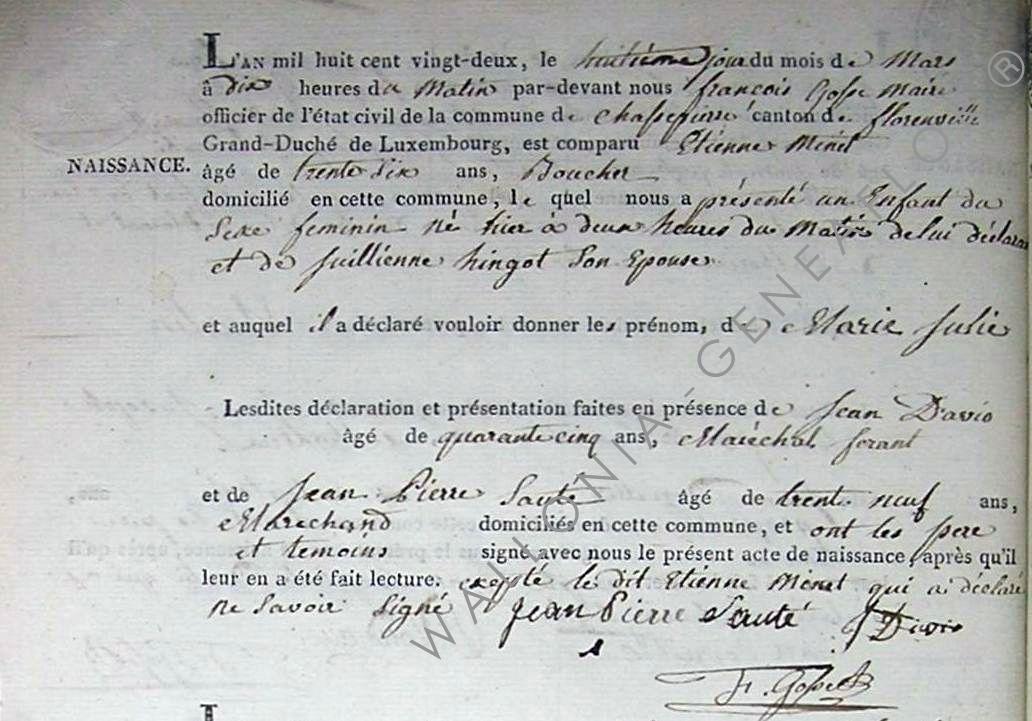 L'AN mil huit cent vingt-deux, le huitième jour du mois de Mars
à dix heures du Matin par-devant nous françois Gosse Maire
officier de l'état civil de la commune de Chassepierre canton de florenville
Grand-Duché de Luxembourg, est comparu Etienne Minet
NAISSANCE.
âgé de trente Six ans, Boucher
domicilié en cette commune, le quel nous a présenté un Enfant du
Sexe feminin né hier à deux heures du Matin de lui déclarant
et de Juillienne hingot Son Epouse
et auquel il a déclaré vouloir donner les prénom, de Marie Julie
Lesdites déclaration et présentation faites en présence de Jean Davio
âgé de quarante cinq ans, Maréchal ferant
et de Jean Pierre Sauté âgé de trente neuf ans,
Marechand domiciliés en cette commune, et ont les pere
et temoins signé avec nous le présent acte de naissance, après qu'il
leur en a été fait lecture. excepté le dit Etienne Menet qui a déclaré
ne Savoir Signé Jean Pierre Sauté J Davio
F. Gosse
WALLONIA-GENEALO
®